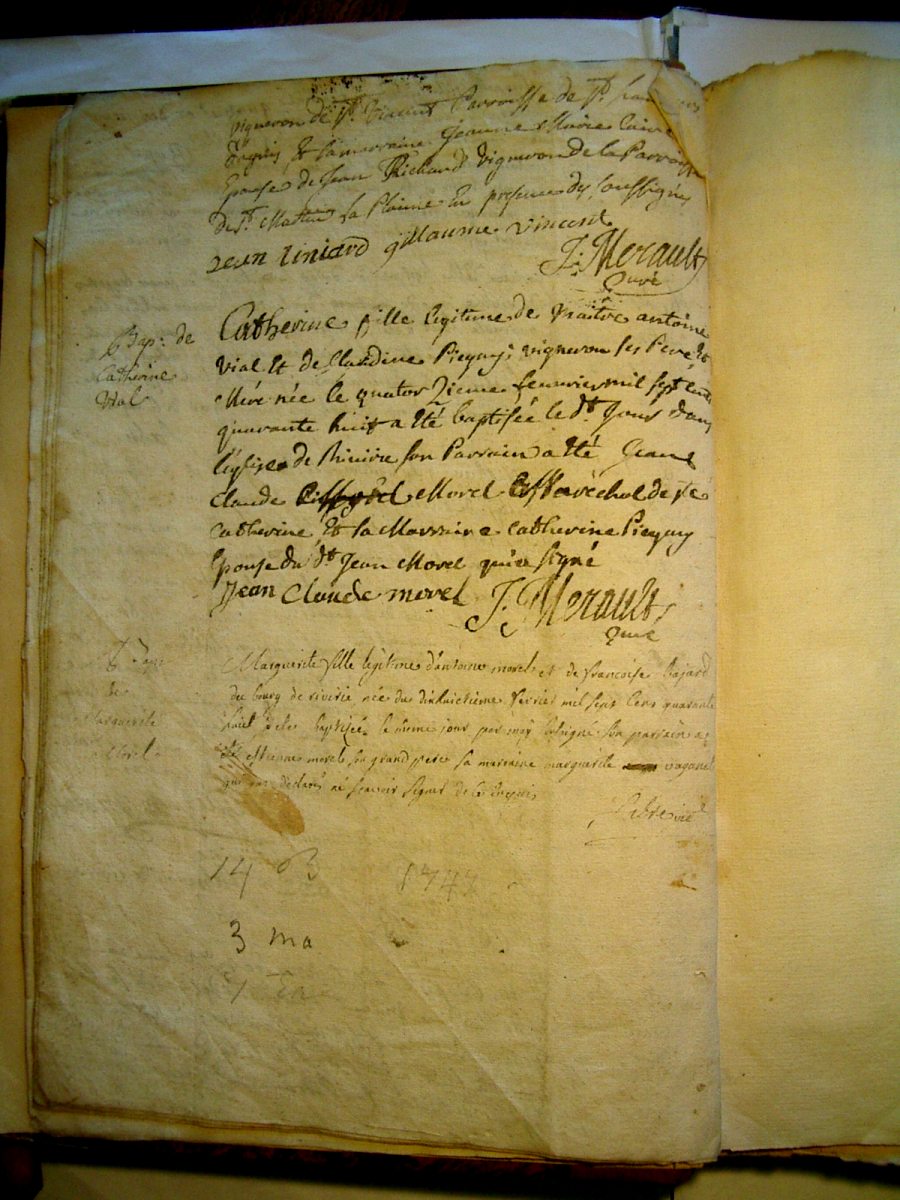 vigneron de St. vincent Parroisse de St.
requis & la marraine Jeanne Marie
Epouse de Jean Richard vigneron de la Parroisse
de St. Martin la Plaine En presence des soussignés
jean Liniard guillaume vincent
J. Merault
Curé
Bap: de
Catherine
Vial
Catherine fille legitime de maitre antoine
vial & de Claudine Picquy vigneron ses Pere &
Mére née le quatorzieme feuvrier mil sept cents
quarante huit a été baptisée le dt. Jour dans
l'église de Riviri son Parrain a été Jean
Claude Morel Maréchal de ste
Catherine & la Marraine Catherine Picquy
Epouse du dt. Jean Morel qui a signé
Jean Claude morel J. Merault
Curé
Bap
de
Marguerite
Morel
Marguerite fille legitime d'antoine morel et de francoise Bajard
du bourg de riviri, née du dixhuictieme fevrier mil sept cens quarante
huit a eté baptisée le meme jour par moy soussigné son parrain a
eté Estienne morel son grand pere sa marraine marguerite vaganel
qui ont déclarés ne scavoir signer de ce enquis
14 B 1747
3 ma